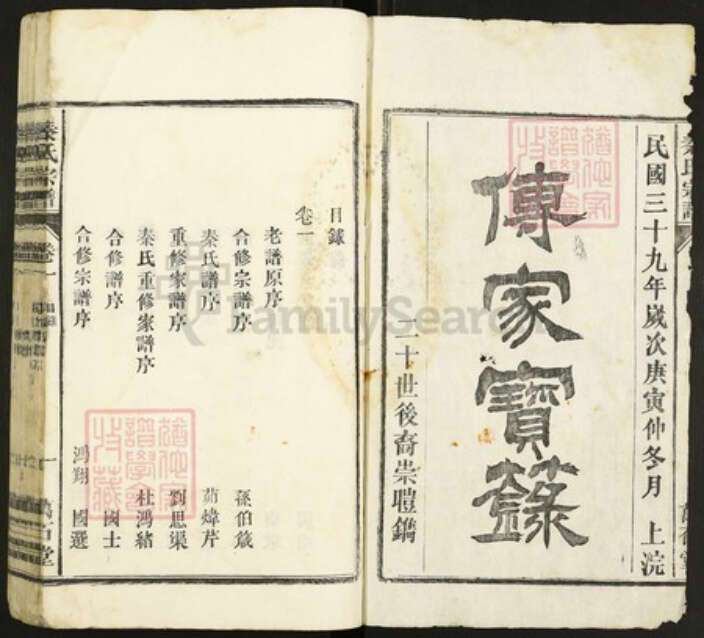 民國三十九年歲次庚寅仲冬月 上浣
傳家寶籙
二十世後裔崇禮鐫
目錄
卷一
老譜原序
合修宗譜序 孫伯箴
秦氏譜序
重修家譜序 劉思渠
秦氏重修家譜序 杜鴻緒
合修譜序 國士
合修宗譜序 鴻翔 國選
秦氏宗譜
卷一
目錄
一
萬石堂
FamilySearch